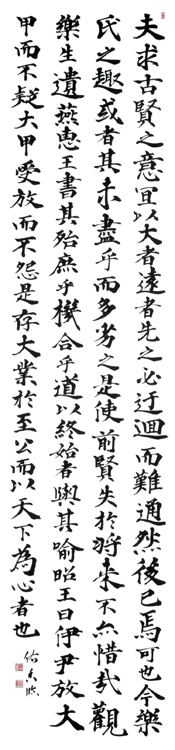 夫求古賢之意宜以大者遠者先之必迂迴而難通然後已焉可也今樂
氏之趣或者其未盡乎而多劣之是使前賢失於將来不亦惜哉觀
樂生遺燕惠王書其殆庶乎機合乎道以終始者與其喻昭王曰伊尹放大
甲而不疑大甲受放而不怨是存大業於至公而以天下為心者也
臨